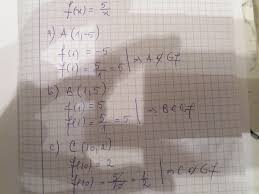 f(x) = 5/x
a) A(1,-5)
f(1) = -5
f(1) = 5/1 = 5 | ⇒ A ∉ Gf
b) B(1,5)
f(1) = 5
f(1) = 5/1 = 5 | ⇒ B ∈ Gf
c) C(10,2)
f(10) = 2
f(10) = 5/10 = 1/2 | ⇒ C ∉ Gf